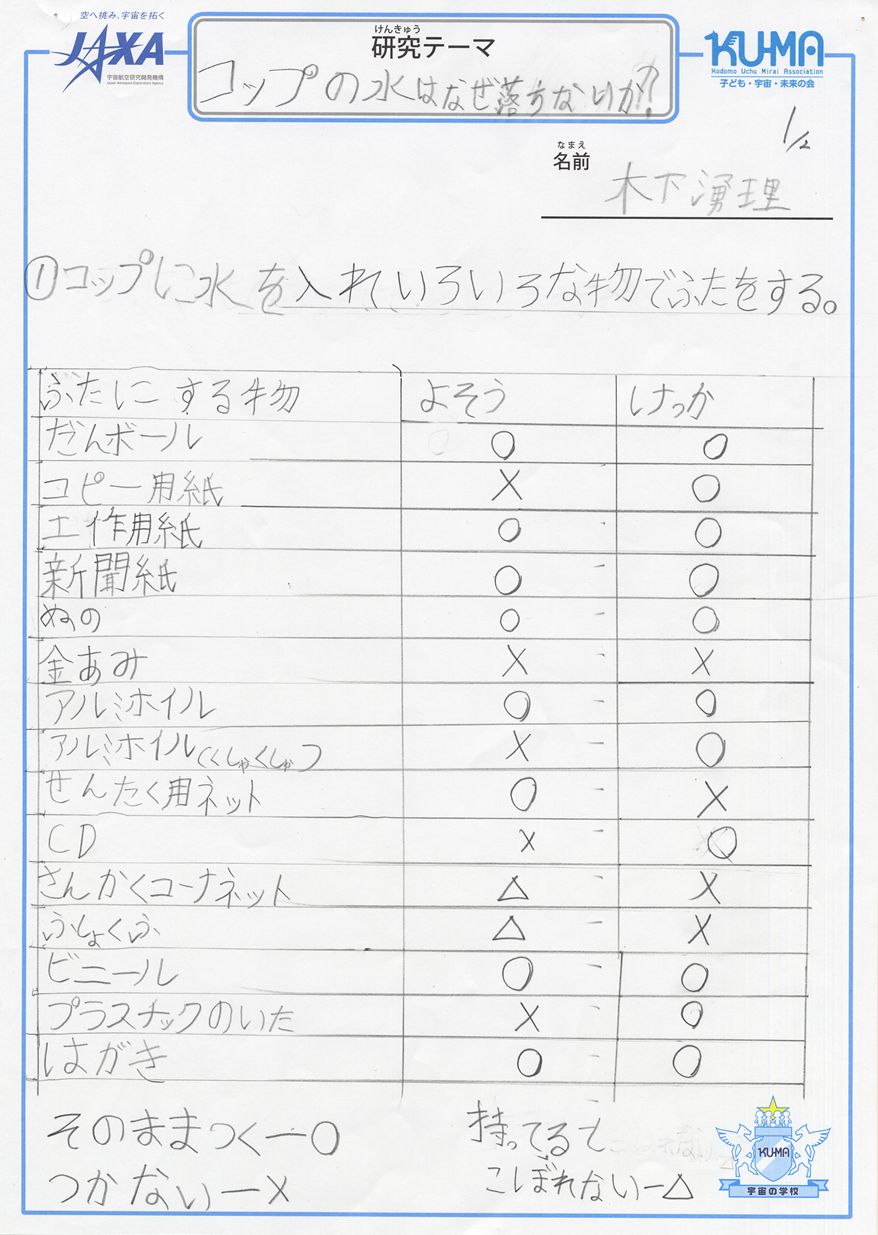 空へ挑み、宇宙を拓く
JAXA
宇宙航空研究開発機構
Japan Aerospace Exploration Agency
けんきゅう
研究テーマ
コップの水はなぜ落ちないか?
KU-MA
Kodomo Uchu Mirai Association
子ども・宇宙・未来の会
1/2
なまえ
名前 木下湧理
①コップに水を入れいろいろな物でふたをする。
ふたにする物 よそう けっか
だんボール ○ ○
コピー用紙 × ○
工作用紙 ○ ○
新聞紙 ○ ○
ぬの ○ ○
金あみ × ×
アルミホイル ○ ○
アルミホイル(くしゃくしゃ) × ○
せんたく用ネット ○ ×
CD × ○
さんかくコーナネット △ ×
ふしょくふ △ ×
ビニール ○ ○
プラスチックのいた × ○
はがき ○ ○
そのままつくー○
つかないー×
持ってると
こぼれないー△
KU-MA
宇宙の学校